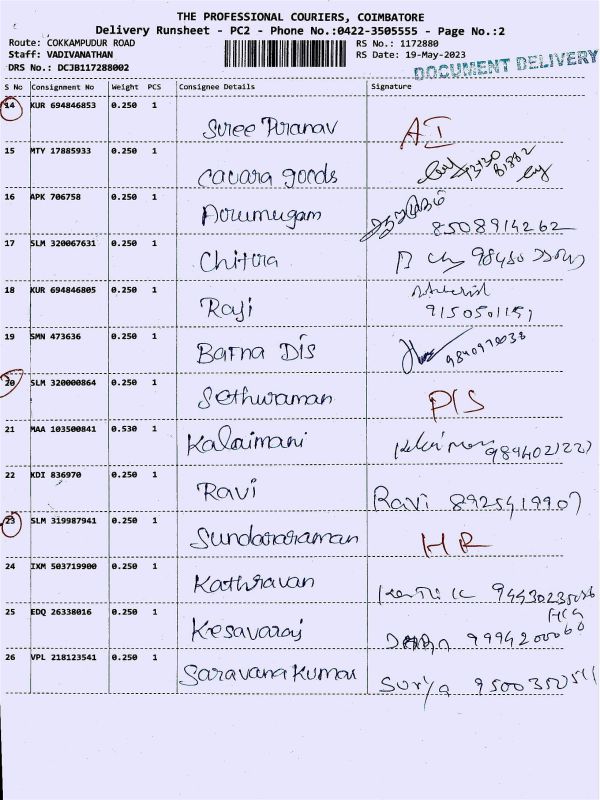 THE PROFESSIONAL COURIERS, COIMBATORE
Delivery Runsheet - PC2 - Phone No.:0422-3505555 - Page No.:2
Route: COKKAMPUDUR ROAD
RS No.: 1172880
Staff: VADIVANATHAN
RS Date: 19-May-2023
DRS No.: DCJB117288002
DOCUMENT DELIVERY
S No Consignment No Weight PCS Consignee Details Signature
14 KUR 694846853 0.250 1
Sree Pranav AI
15 MTY 17885933 0.250 1
cavara goods
16 APK 706758 0.250 1
Aorumugam 8508914262
17 SLM 320067631 0.250 1
Chitra
18 KUR 694846805 0.250 1
Raji
19 SMN 473636 0.250 1
Bafna Dis
20 SLM 320000864 0.250 1
Sethuraman P/S
21 MAA 103500841 0.530 1
Kalaimani
22 KDI 836970 0.250 1
Ravi Ravi 8925419907
23 SLM 319987941 0.250 1
Sundararaman HR
24 IXM 503719900 0.250 1
Kathiravan
25 EDQ 26338016 0.250 1
Kesavaraj 9994200060
26 VPL 218123541 0.250 1
Saravana Kumar Surya